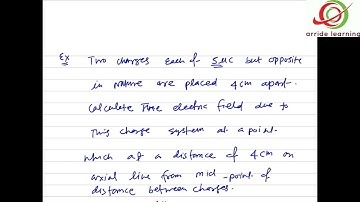 arride learning
Ex Two charges each of 5μC but opposite
in nature are placed 4cm apart.
Calculate the electric field due to
this charge system at a point
which at a distance of 4cm on
axial line from mid-point of
distance between charges.